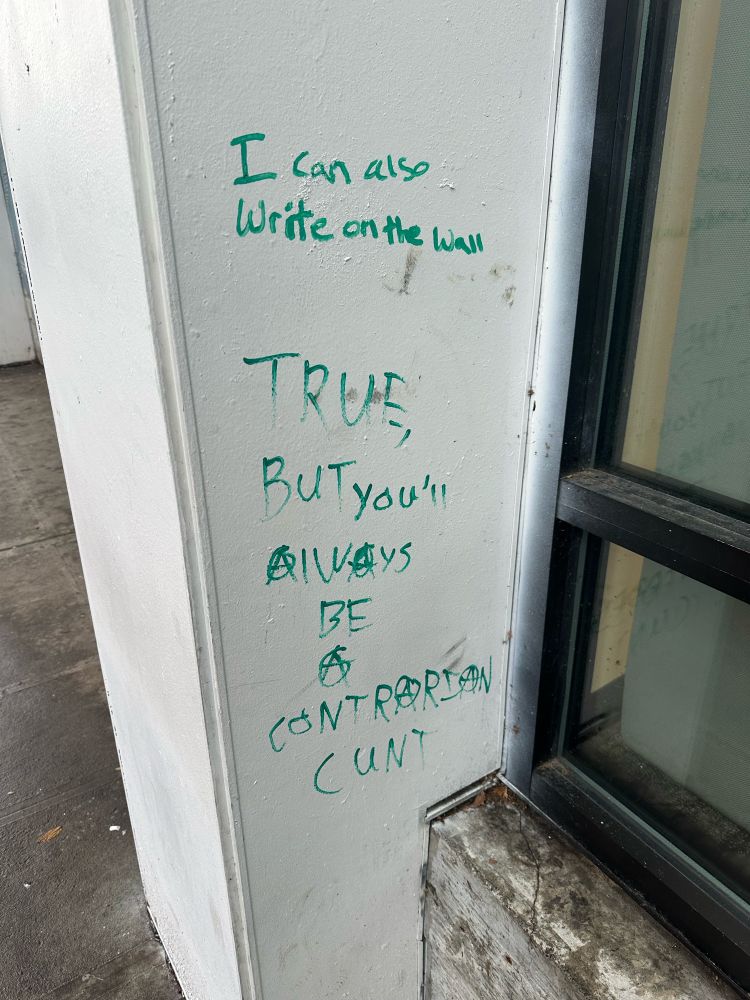 I can also
Write on the wall
TRUE,
BUT you'll
AlWAYS
BE
A
CONTRARIAN
CUNT